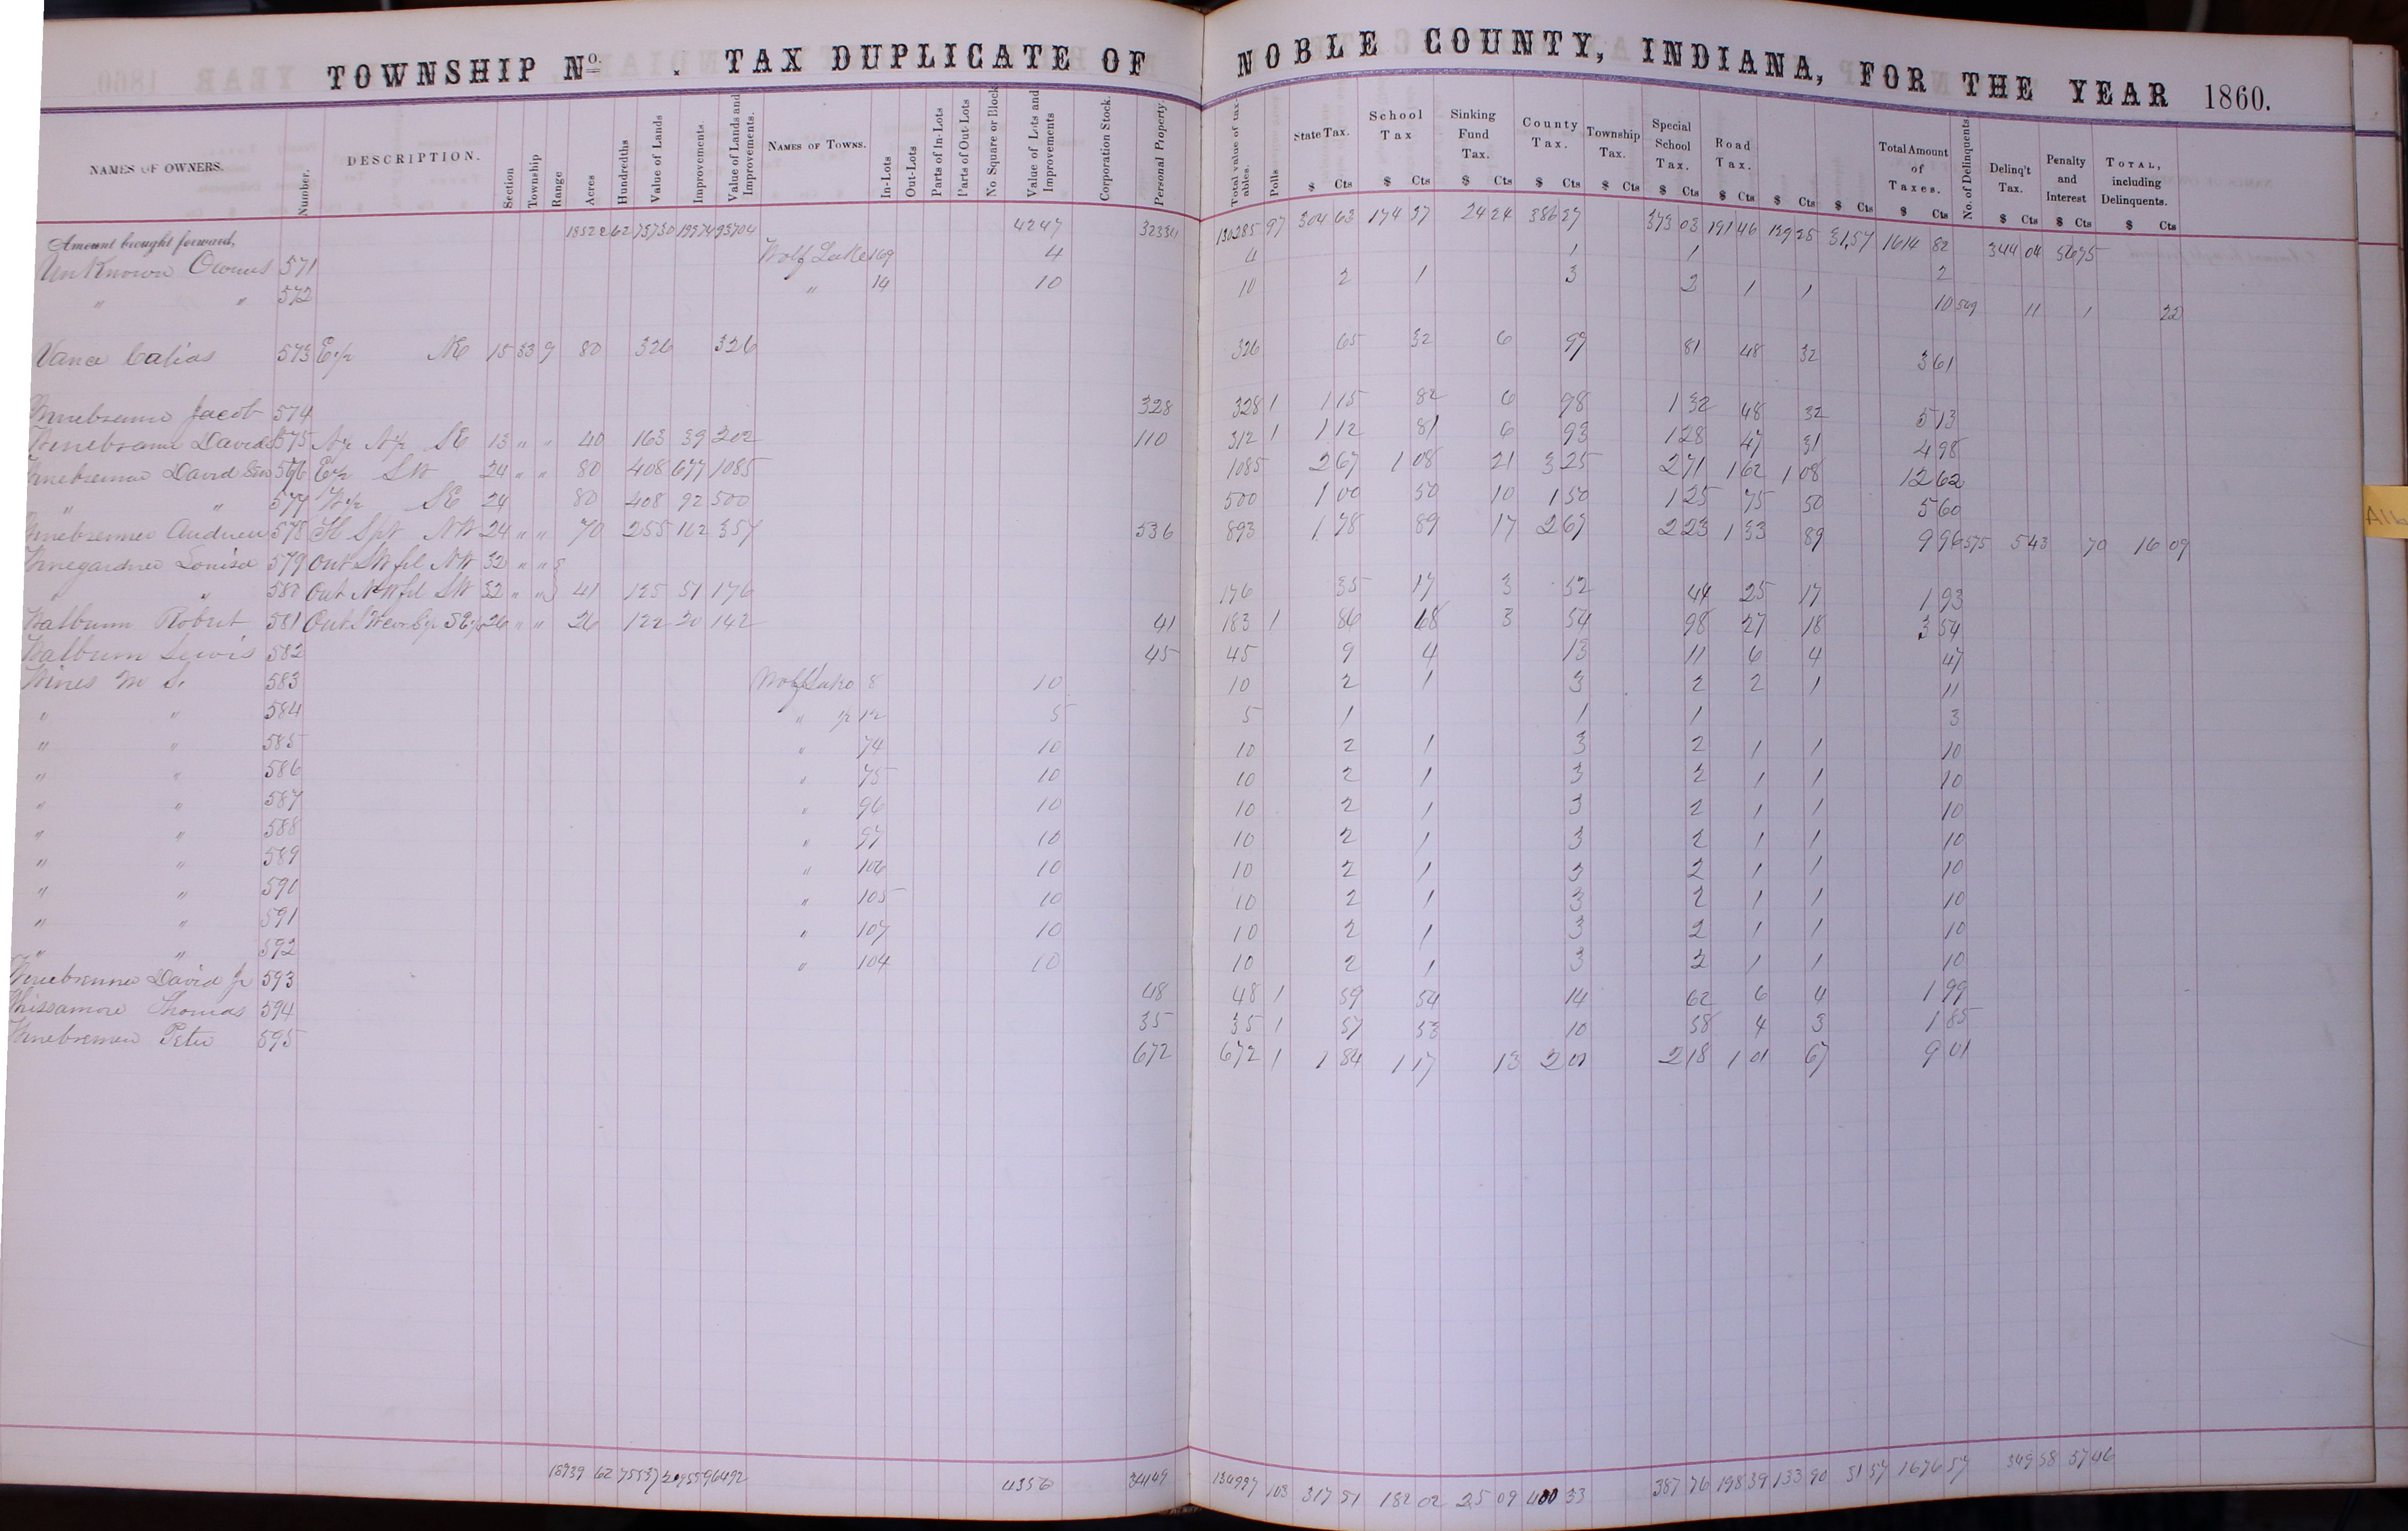 TOWNSHIP No. . TAX DUPLICATE OF NOBLE COUNTY, INDIANA, FOR THE YEAR 1860.
NAMES OF OWNERS. Number. DESCRIPTION. Section Township Range Acres Hundredths Value of Lands Improvements. Value of Lands and Improvements. NAMES OF TOWNS. In-Lots Out-Lots Parts of In-Lots Parts of Out-Lots No Square or Block Value of Lots and Improvements Corporation Stock. Personal Property. Total value of taxables. Polls State Tax. School Tax Sinking Fund Tax. County Tax. Township Tax. Special School Tax. Road Tax. Total Amount of Taxes. No. of Delinquents Delinq't Tax. Penalty and Interest TOTAL, including Delinquents.
$ Cts $ Cts $ Cts $ Cts $ Cts $ Cts $ Cts $ Cts $ Cts $ Cts $ Cts $ Cts $ Cts
Amount brought forward, 62 4247 130285 97 304 63 174 37 24 24 386 37 373 03 191 46 129 28 31,57 1614 82 344 04 56 75
Unknown Owners 571 Wolf Lake 169 4 4 1 1 2
" " 572 " 14 10 10 2 1 3 2 1 1 10 549 11 1 22
Vance 573 E½ NE 15 33 9 80 326 326 326 65 32 6 99 81 48 32 3 61
Jacob 574 328 328 1 1 15 82 6 98 1 32 48 32 5 13
David 575 SE 13 " " 40 163 39 202 110 312 1 1 12 81 6 93 1 28 47 31 4 98
David Sen 576 E½ SW 24 " " 80 408 677 1085 1085 2 67 1 08 21 3 25 2 71 1 62 1 08 12 62
" " 577 W½ SE 24 80 408 92 500 500 1 00 50 10 1 50 1 25 75 50 5 60
Andrew 578 NW 24 " " 70 255 102 357 536 893 1 78 89 17 2 67 2 23 1 33 89 9 96 575 5 43 70 16 09
Louisa 579 Out SW fr NW 32 " "
" 580 Out NW fr SW 32 " " 41 125 51 176 176 35 17 3 52 44 25 17 1 93
Walburn Robert 581 26 " " 26 122 20 142 41 183 1 86 68 3 54 98 27 18 3 54
Walburn Lewis 582 45 45 9 4 13 11 6 4 47
Wines 583 Wolf Lake 8 10 10 2 1 3 2 2 1 11
" " 584 " ½ 12 5 5 1 1 1 3
" " 585 " 74 10 10 2 1 3 2 1 1 10
" " 586 " 75 10 10 2 1 3 2 1 1 10
" " 587 " 96 10 10 2 1 3 2 1 1 10
" " 588 " 97 10 10 2 1 3 2 1 1 10
" " 589 " 106 10 10 2 1 3 2 1 1 10
" " 590 " 105 10 10 2 1 3 2 1 1 10
" " 591 " 107 10 10 2 1 3 2 1 1 10
" " 592 " 104 10 10 2 1 3 2 1 1 10
David Jr 593 48 48 1 59 54 14 62 6 4 1 99
Thomas 594 35 35 1 57 53 10 58 4 3 1 85
Peter 595 672 672 1 1 84 1 17 13 2 01 2 18 1 01 67 9 01
18939 62 75537 96492 4356 34149 134997 103 317 51 182 02 25 09 400 33 387 76 198 39 133 90 31 57 1676 57 349 58 57 46